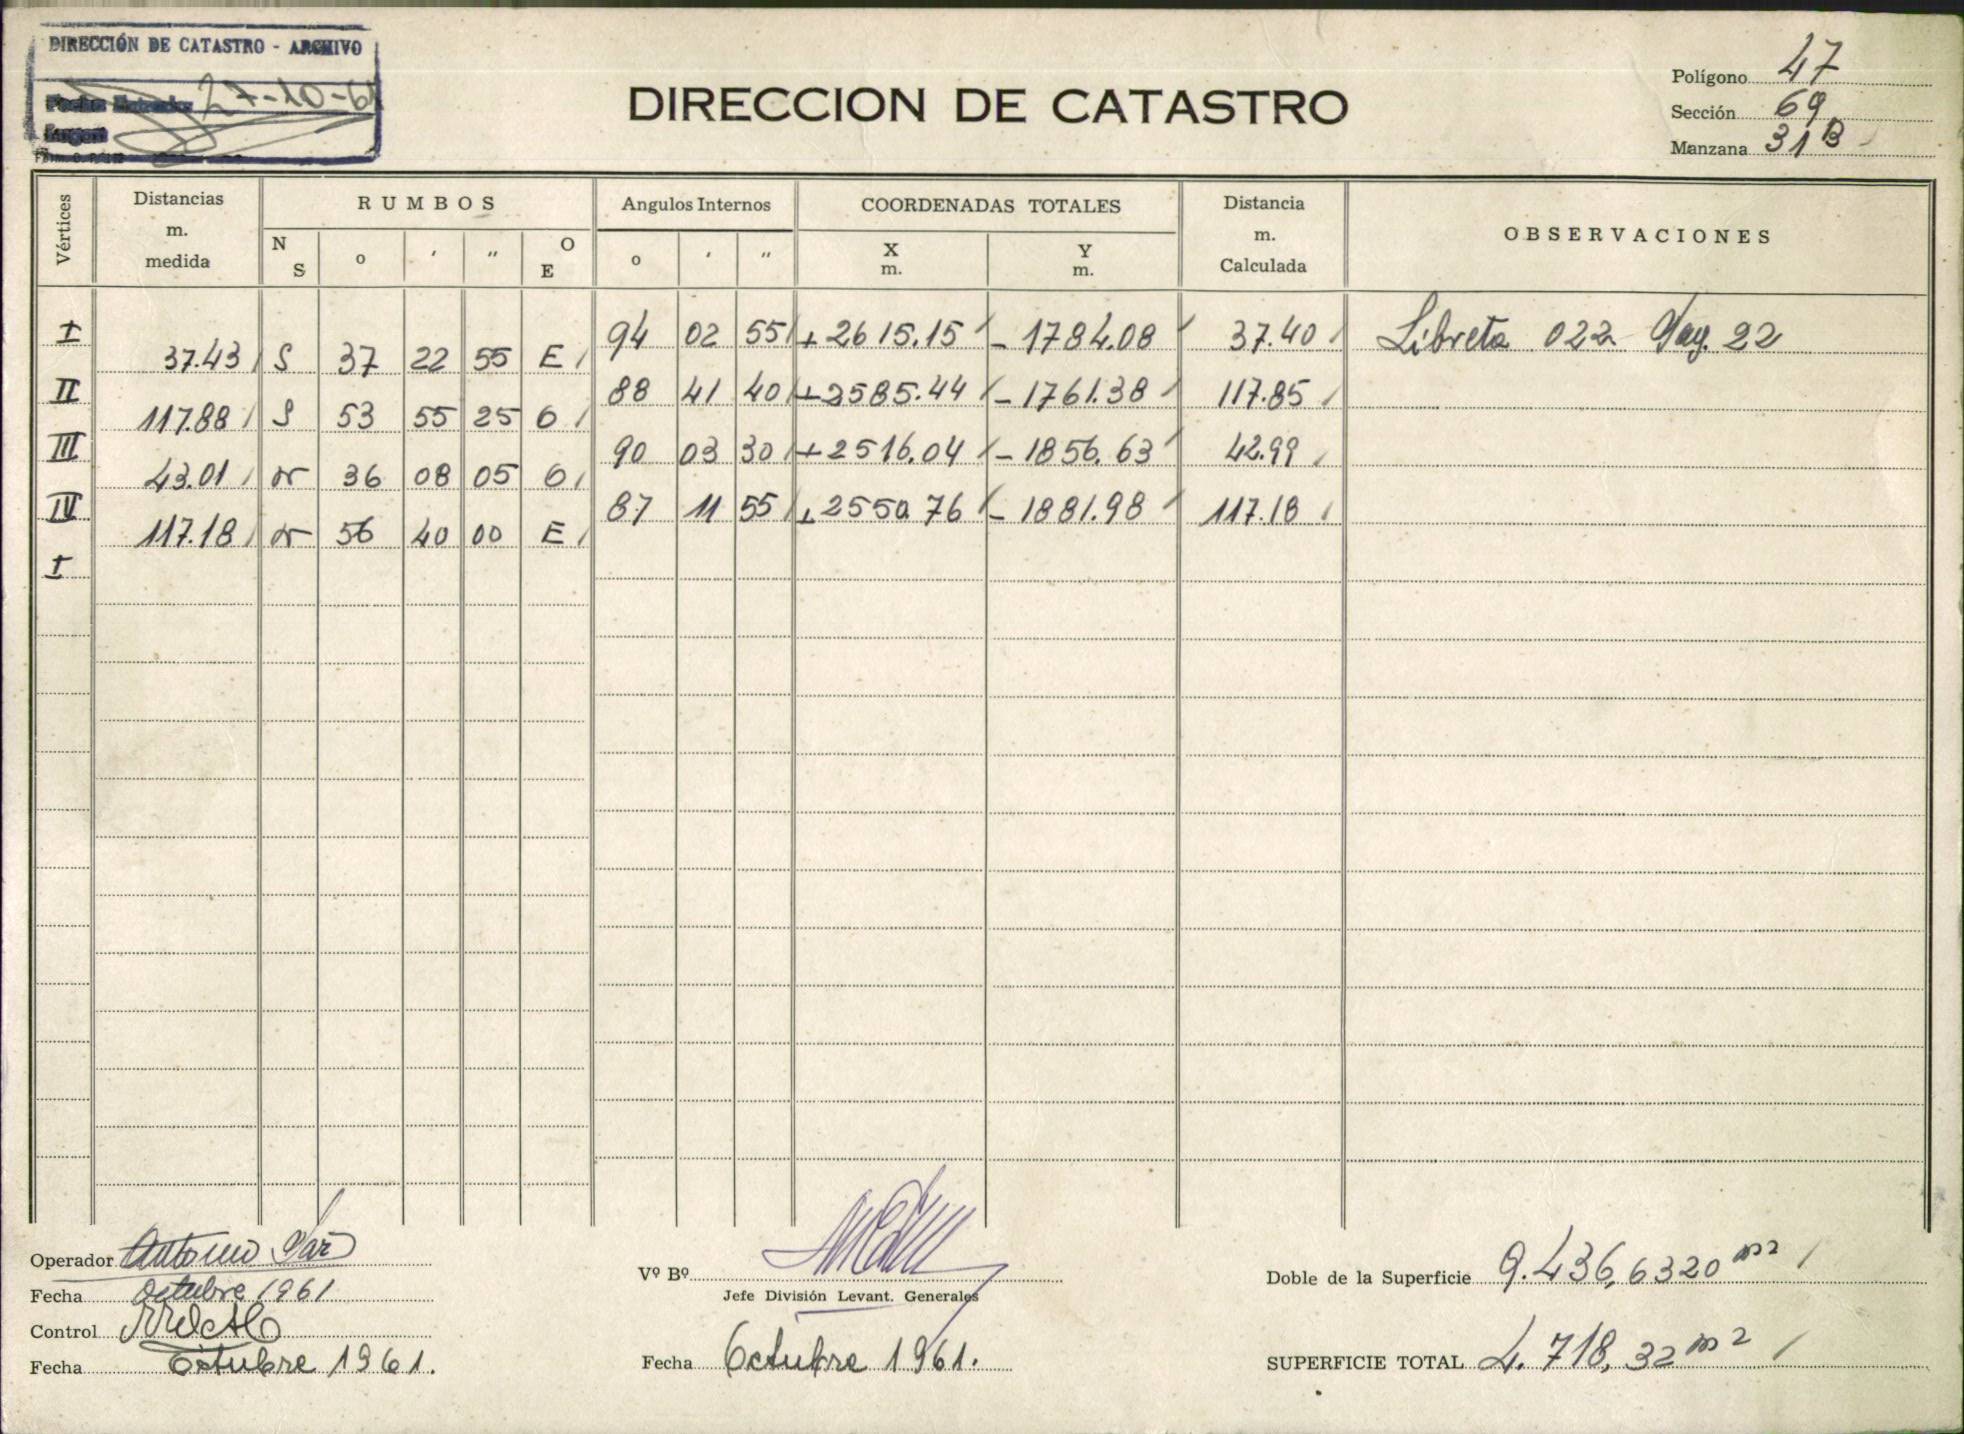 DIRECCIÓN DE CATASTRO - ARCHIVO
27-10-61
DIRECCION DE CATASTRO
Polígono 47
Sección 69
Manzana 31B
Vértices
Distancias m. medida
RUMBOS
N S
o ' "
O E
Angulos Internos
o ' "
COORDENADAS TOTALES
X m.
Y m.
Distancia m. Calculada
OBSERVACIONES
I 94 02 55 +2615.15 -1784.08 37.40 Libreta 022 Pag. 22
37.43 S 37 22 55 E
II 88 41 40 +2585.44 -1761.38 117.85
117.88 S 53 55 25 O
III 90 03 30 +2516.04 -1856.63 42.99
43.01 N 36 08 05 O
IV 87 11 55 +2550.76 -1881.98 117.18
117.18 N 56 40 00 E
I
Operador Antonio
Fecha Octubre 1961
Control
Fecha Octubre 1961.
Vº Bº
Jefe División Levant. Generales
Fecha Octubre 1961.
Doble de la Superficie 9.436,6320 m2
SUPERFICIE TOTAL 4.718,32 m2